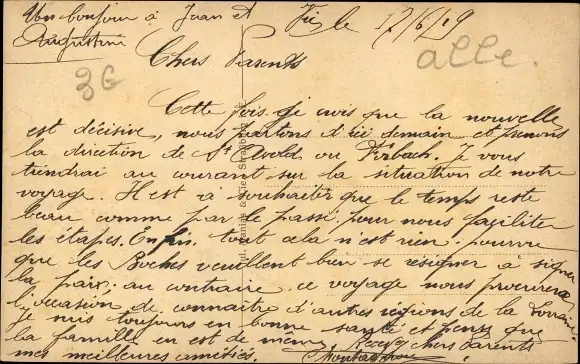 Un bonjour à Juan et
Augustine
le 17/6/19
alle.
3G
Chers Parents
Cette fois je crois que la nouvelle
est décisive, nous partons d'ici demain et prenons
la direction de St Avold ou Forbach. Je vous
tiendrai au courant sur la situation de notre
voyage. Il est à souhaiter que le temps reste
beau comme par le passé pour nous faciliter
les étapes. Enfin tout cela n'est rien pourvu
que les Boches veuillent bien se résigner à signer
la paix, au contraire ce voyage nous procurera
l'occasion de connaître d'autres régions de la Lorraine.
Je suis toujours en bonne santé et pense que
la famille en est de même. Recevez chers Parents
mes meilleures amitiés.